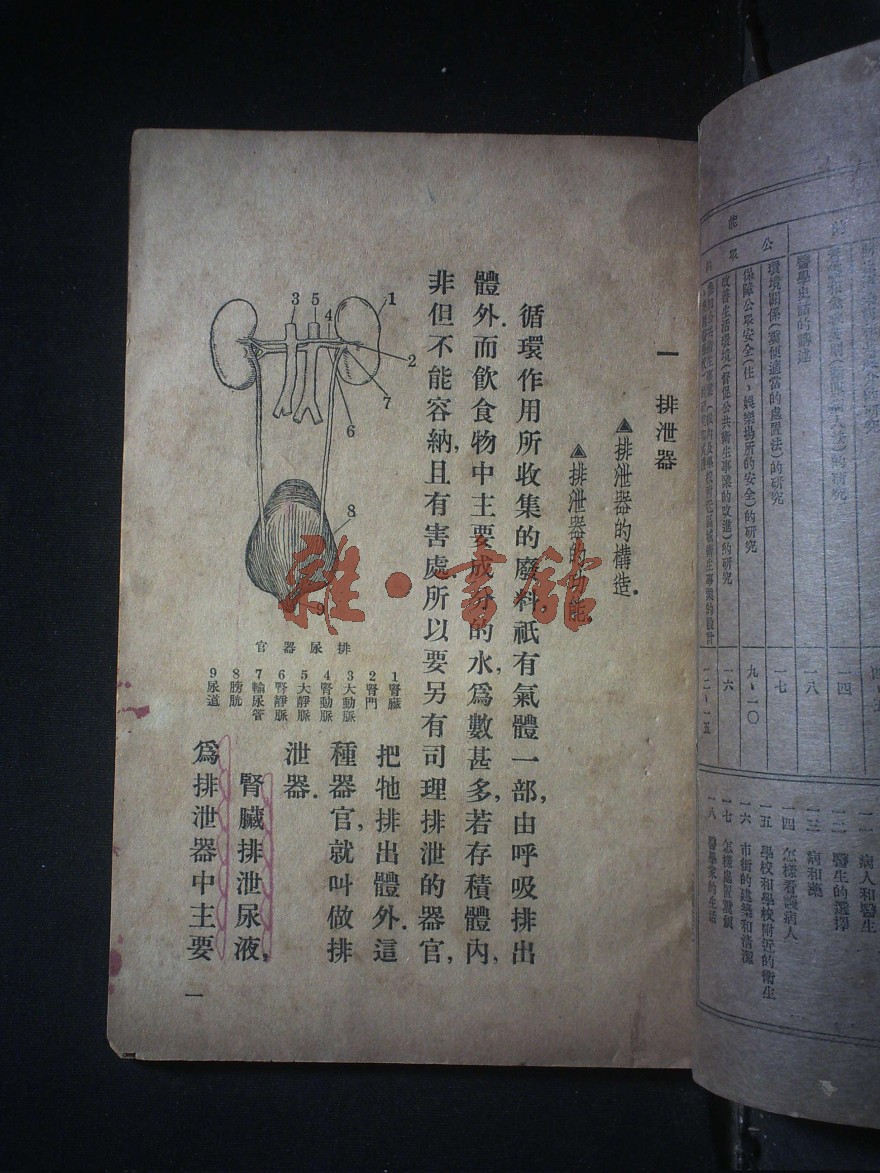 一 排泄器
▲排泄器的構造.
▲排泄器的功能.
循環作用所收集的廢料,祇有氣體一部,由呼吸排出
體外.而飲食物中主要成分的水,爲數甚多,若存積體內,
非但不能容納,且有害處.所以要另有司理排泄的器官,
把牠排出體外.這
種器官,就叫做排
泄器.
腎臟排泄尿液,
爲排泄器中主要
一
3 5 4 1
2
7
6
8
9
排尿器官
1腎臟
2腎門
3大動脈
4腎動脈
5大靜脈
6腎靜脈
7輸尿管
8膀胱
9尿道
雜·書館
公
眾
能
環境關係(需傾適當的處置法)的研究
保障公眾安全(住,娛樂場所的安全)的研究
改善生活環境(督促公共衛生事業的改進)的研究
醫學史話的講述
一四
一八
一七
九,一〇
一六
一二,一五
一一 病人和醫生
一二 醫生的選擇
一三 病和藥
一四 怎樣看護病人
一五 學校和學校附近的衛生
一六 市街的建築和清潔
一七 怎樣處置
一八 醫學家的生活